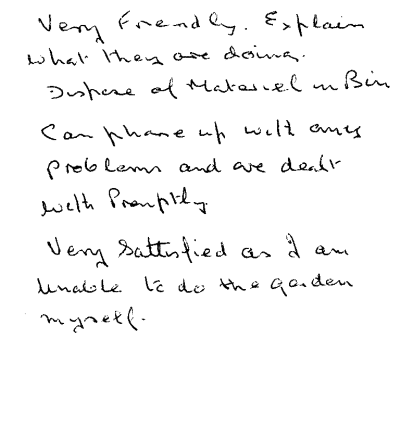 Very Friendly. Explain
what they are doing.
Dispose of Material in Bin
Can phone up with any
problems and are dealt
with Promptly
Very Sattisfied as I am
Unable to do the garden
myself.